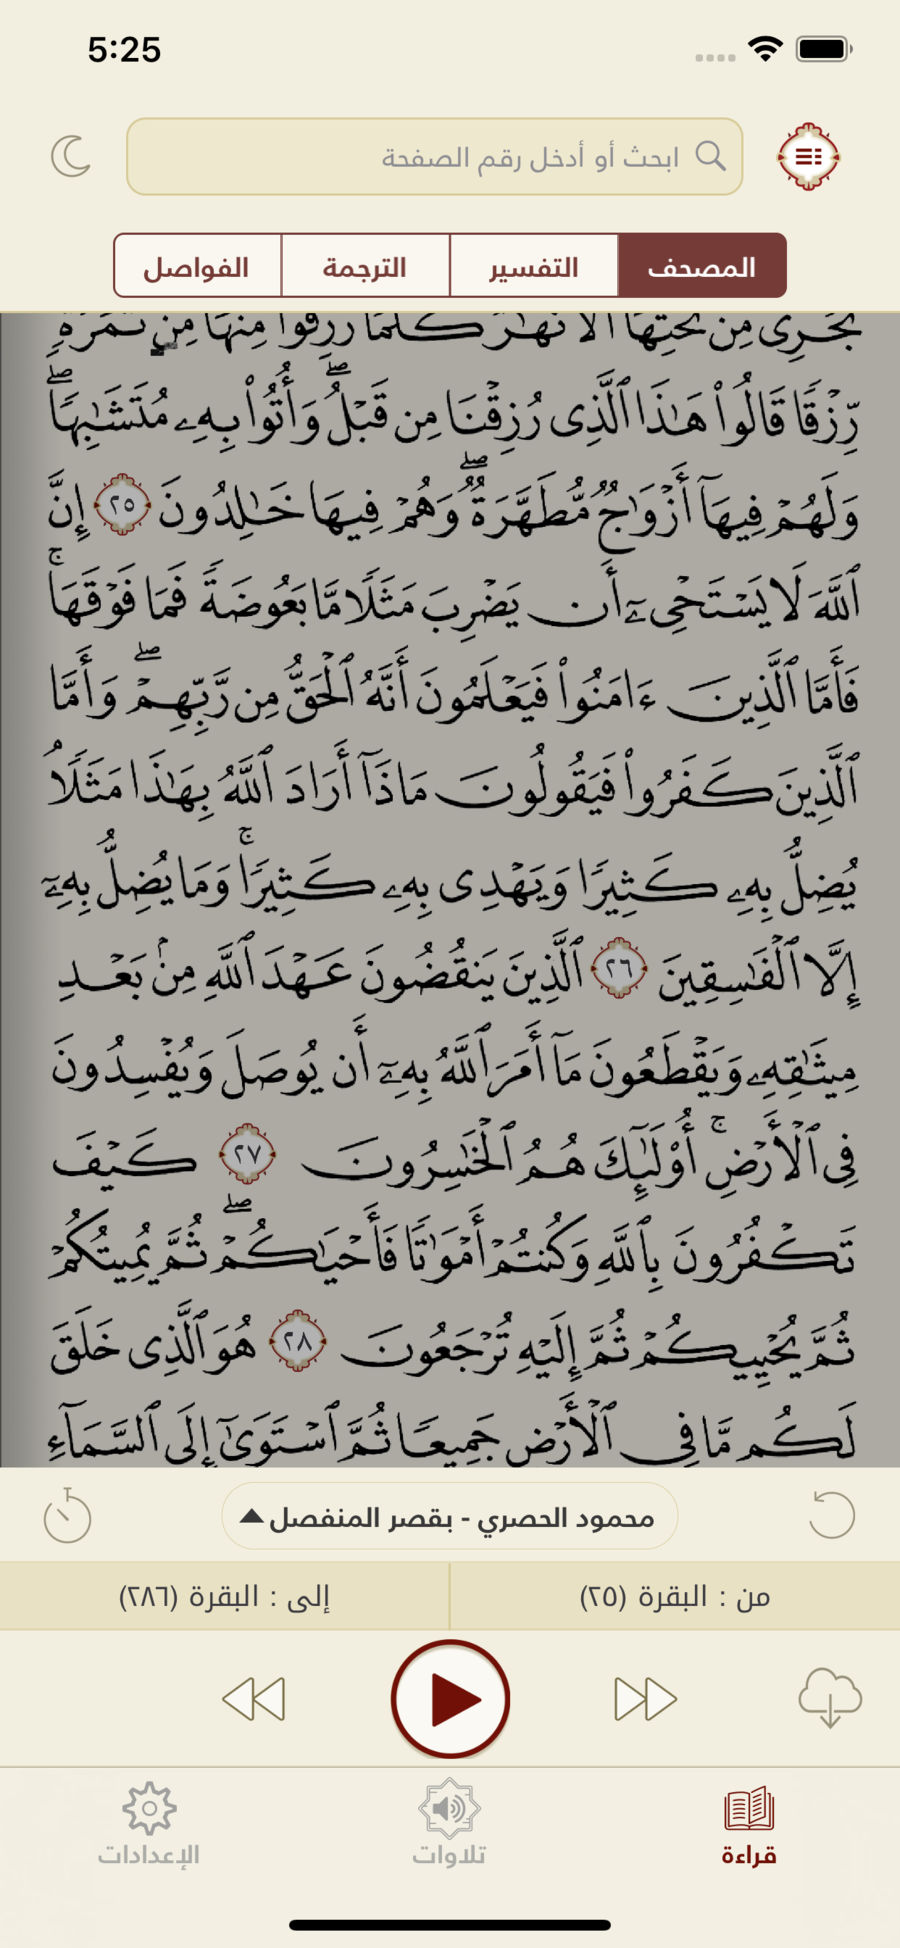 5:25
ابحث أو أدخل رقم الصفحة
المصحف
التفسير
الترجمة
الفواصل
تَجۡرِي مِن تَحۡتِهَا ٱلۡأَنۡهَٰرُ كُلَّمَا رُزِقُواْ مِنۡهَا مِن ثَمَرَةٖ
رِّزۡقٗا قَالُواْ هَٰذَا ٱلَّذِي رُزِقۡنَا مِن قَبۡلُۖ وَأُتُواْ بِهِۦ مُتَشَٰبِهٗاۖ
وَلَهُمۡ فِيهَآ أَزۡوَٰجٞ مُّطَهَّرَةٞۖ وَهُمۡ فِيهَا خَٰلِدُونَ ٢٥ إِنَّ
ٱللَّهَ لَا يَسۡتَحۡيِۦٓ أَن يَضۡرِبَ مَثَلٗا مَّا بَعُوضَةٗ فَمَا فَوۡقَهَاۚ
فَأَمَّا ٱلَّذِينَ ءَامَنُواْ فَيَعۡلَمُونَ أَنَّهُ ٱلۡحَقُّ مِن رَّبِّهِمۡۖ وَأَمَّا
ٱلَّذِينَ كَفَرُواْ فَيَقُولُونَ مَاذَآ أَرَادَ ٱللَّهُ بِهَٰذَا مَثَلٗاۘ
يُضِلُّ بِهِۦ كَثِيرٗا وَيَهۡدِي بِهِۦ كَثِيرٗاۚ وَمَا يُضِلُّ بِهِۦٓ
إِلَّا ٱلۡفَٰسِقِينَ ٢٦ ٱلَّذِينَ يَنقُضُونَ عَهۡدَ ٱللَّهِ مِنۢ بَعۡدِ
مِيثَٰقِهِۦ وَيَقۡطَعُونَ مَآ أَمَرَ ٱللَّهُ بِهِۦٓ أَن يُوصَلَ وَيُفۡسِدُونَ
فِي ٱلۡأَرۡضِۚ أُوْلَٰٓئِكَ هُمُ ٱلۡخَٰسِرُونَ ٢٧ كَيۡفَ
تَكۡفُرُونَ بِٱللَّهِ وَكُنتُمۡ أَمۡوَٰتٗا فَأَحۡيَٰكُمۡۖ ثُمَّ يُمِيتُكُمۡ
ثُمَّ يُحۡيِيكُمۡ ثُمَّ إِلَيۡهِ تُرۡجَعُونَ ٢٨ هُوَ ٱلَّذِي خَلَقَ
لَكُم مَّا فِي ٱلۡأَرۡضِ جَمِيعٗا ثُمَّ ٱسۡتَوَىٰٓ إِلَى ٱلسَّمَآءِ
محمود الحصري - بقصر المنفصل
من : البقرة (٢٥)
إلى : البقرة (٢٨٦)
قراءة
تلاوات
الإعدادات